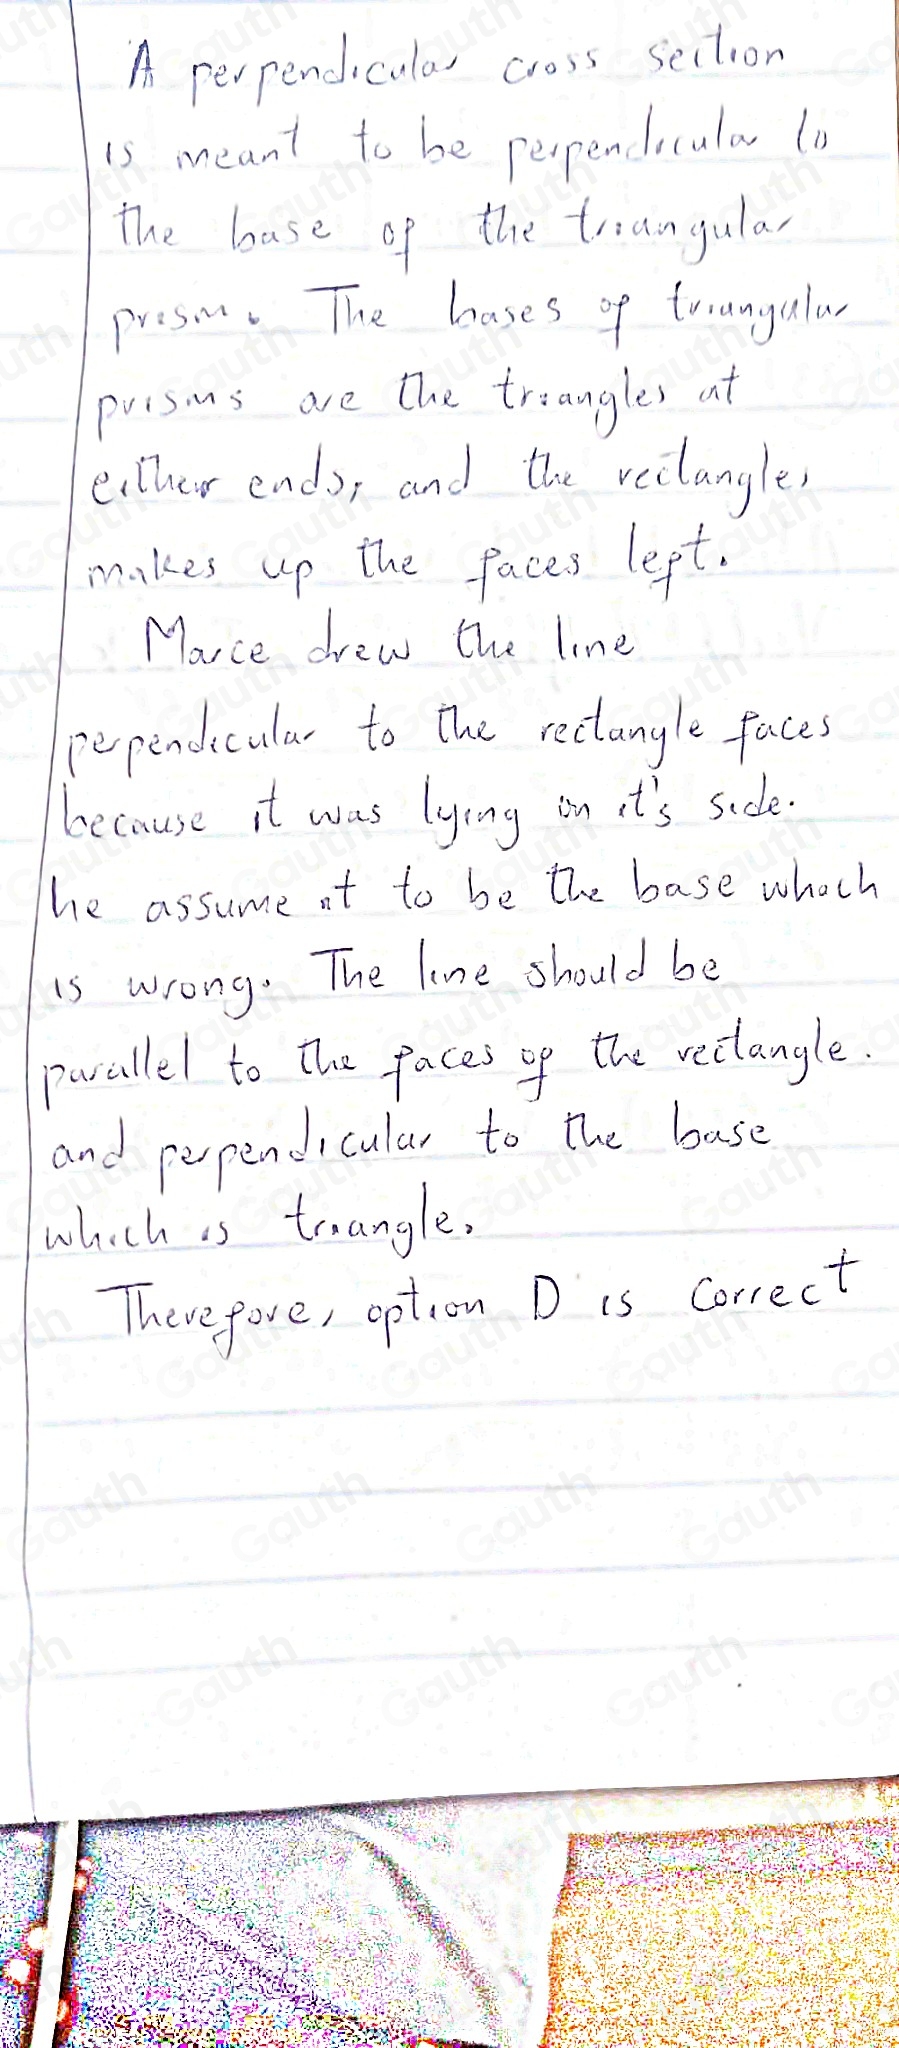 A perpendicular cross section
is meant to be perpendicular to
the base of the triangular
prism. The bases of triangular
prisms are the triangles at
either ends, and the rectangles
makes up the faces left.
Marce drew the line
perpendicular to the rectangle faces
because it was lying on it's side.
he assume it to be the base which
is wrong. The line should be
parallel to the faces of the rectangle.
and perpendicular to the base
which is triangle.
Therefore, option D is correct
Gauth